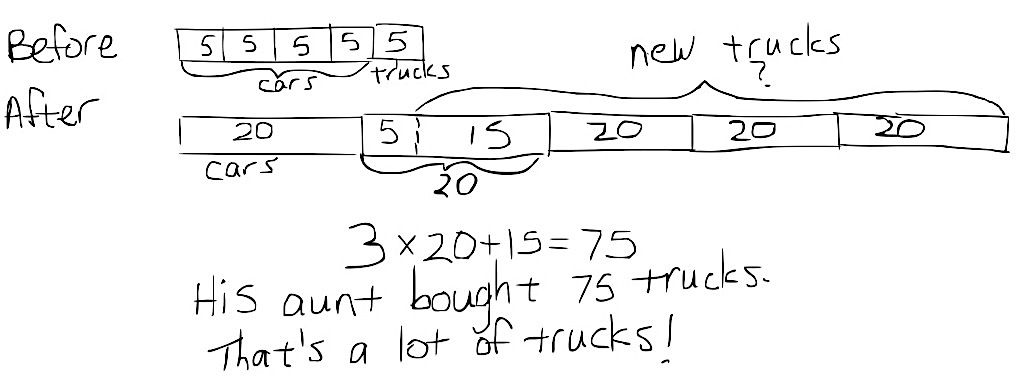 Before 5 5 5 5 5
cars trucks
new trucks
?
After 20 5 15 20 20 20
cars 20
3 × 20 + 15 = 75
His aunt bought 75 trucks.
That's a lot of trucks!